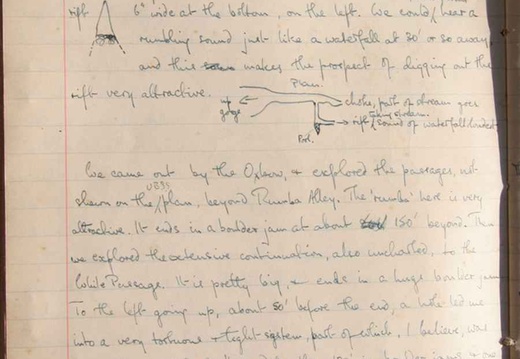 rift 6" wide at the bottom, on the left. We could hear a
rumbling sound just like a waterfall at 30' or so away,
and this makes the prospect of digging out the
rift very attractive.
Plan.
up gorge
choke, part of stream goes
rift, taking stream. sound of waterfall loudest
Pool.
We came out by the Oxbow, & explored the passages, not
shewn on the UBSS plan, beyond Rumba Alley. The 'rumba' here is very
attractive. It ends in a boulder jam at about 150' beyond. Then
we explored the extensive continuation, also uncharted, to the
White Passage. It is pretty big, & ends in a huge boulder jam.
To the left going up, about 50' before the end, a hole led me
into a very tortuous & tight system, part of which, I believe, was